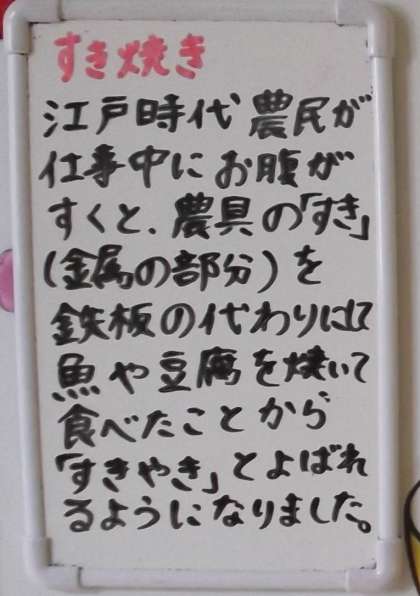 すき焼き
江戸時代 農民が
仕事中に お腹が
すくと、農具の「すき」
(金属の部分)を
鉄板の代わりにして
魚や豆腐を焼いて
食べたことから
「すきやき」とよばれ
るようになりました。